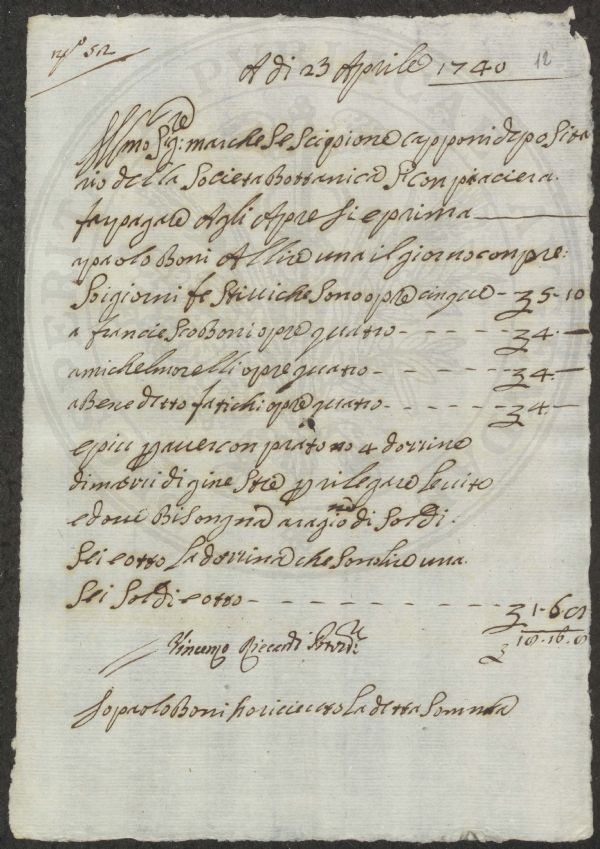 N.º 52
A di 23 Aprile 1740 12
Ill.mo Sig.re marchese Scipione capponi deposita
rio della Societa Bottanica Si Conpiaciera
far pagare Agli Apresi e prima
a paolo Boni A llire una il giorno conpre:
Soi giorni festivi che Sono opre cinque - - 5-10
a franciesco Boni opre quatro - - - - - 4 -
a michel morelli opre quatro - - - - - 4 -
a Benedetto fatichi opre quatro - - - - 4 -
e piu p aver conprato no 4 dozzine
di mazzi di ginestre p rilegare le vite
e dove Bisongna a ragione di Soldi
Sei e otto la dozzina che Sono lire una
Sei Soldi e otto - - - - - - - - 1-6-8
18-16-8
Vincenzo
Io paolo Boni ho riceuto la detta Somma